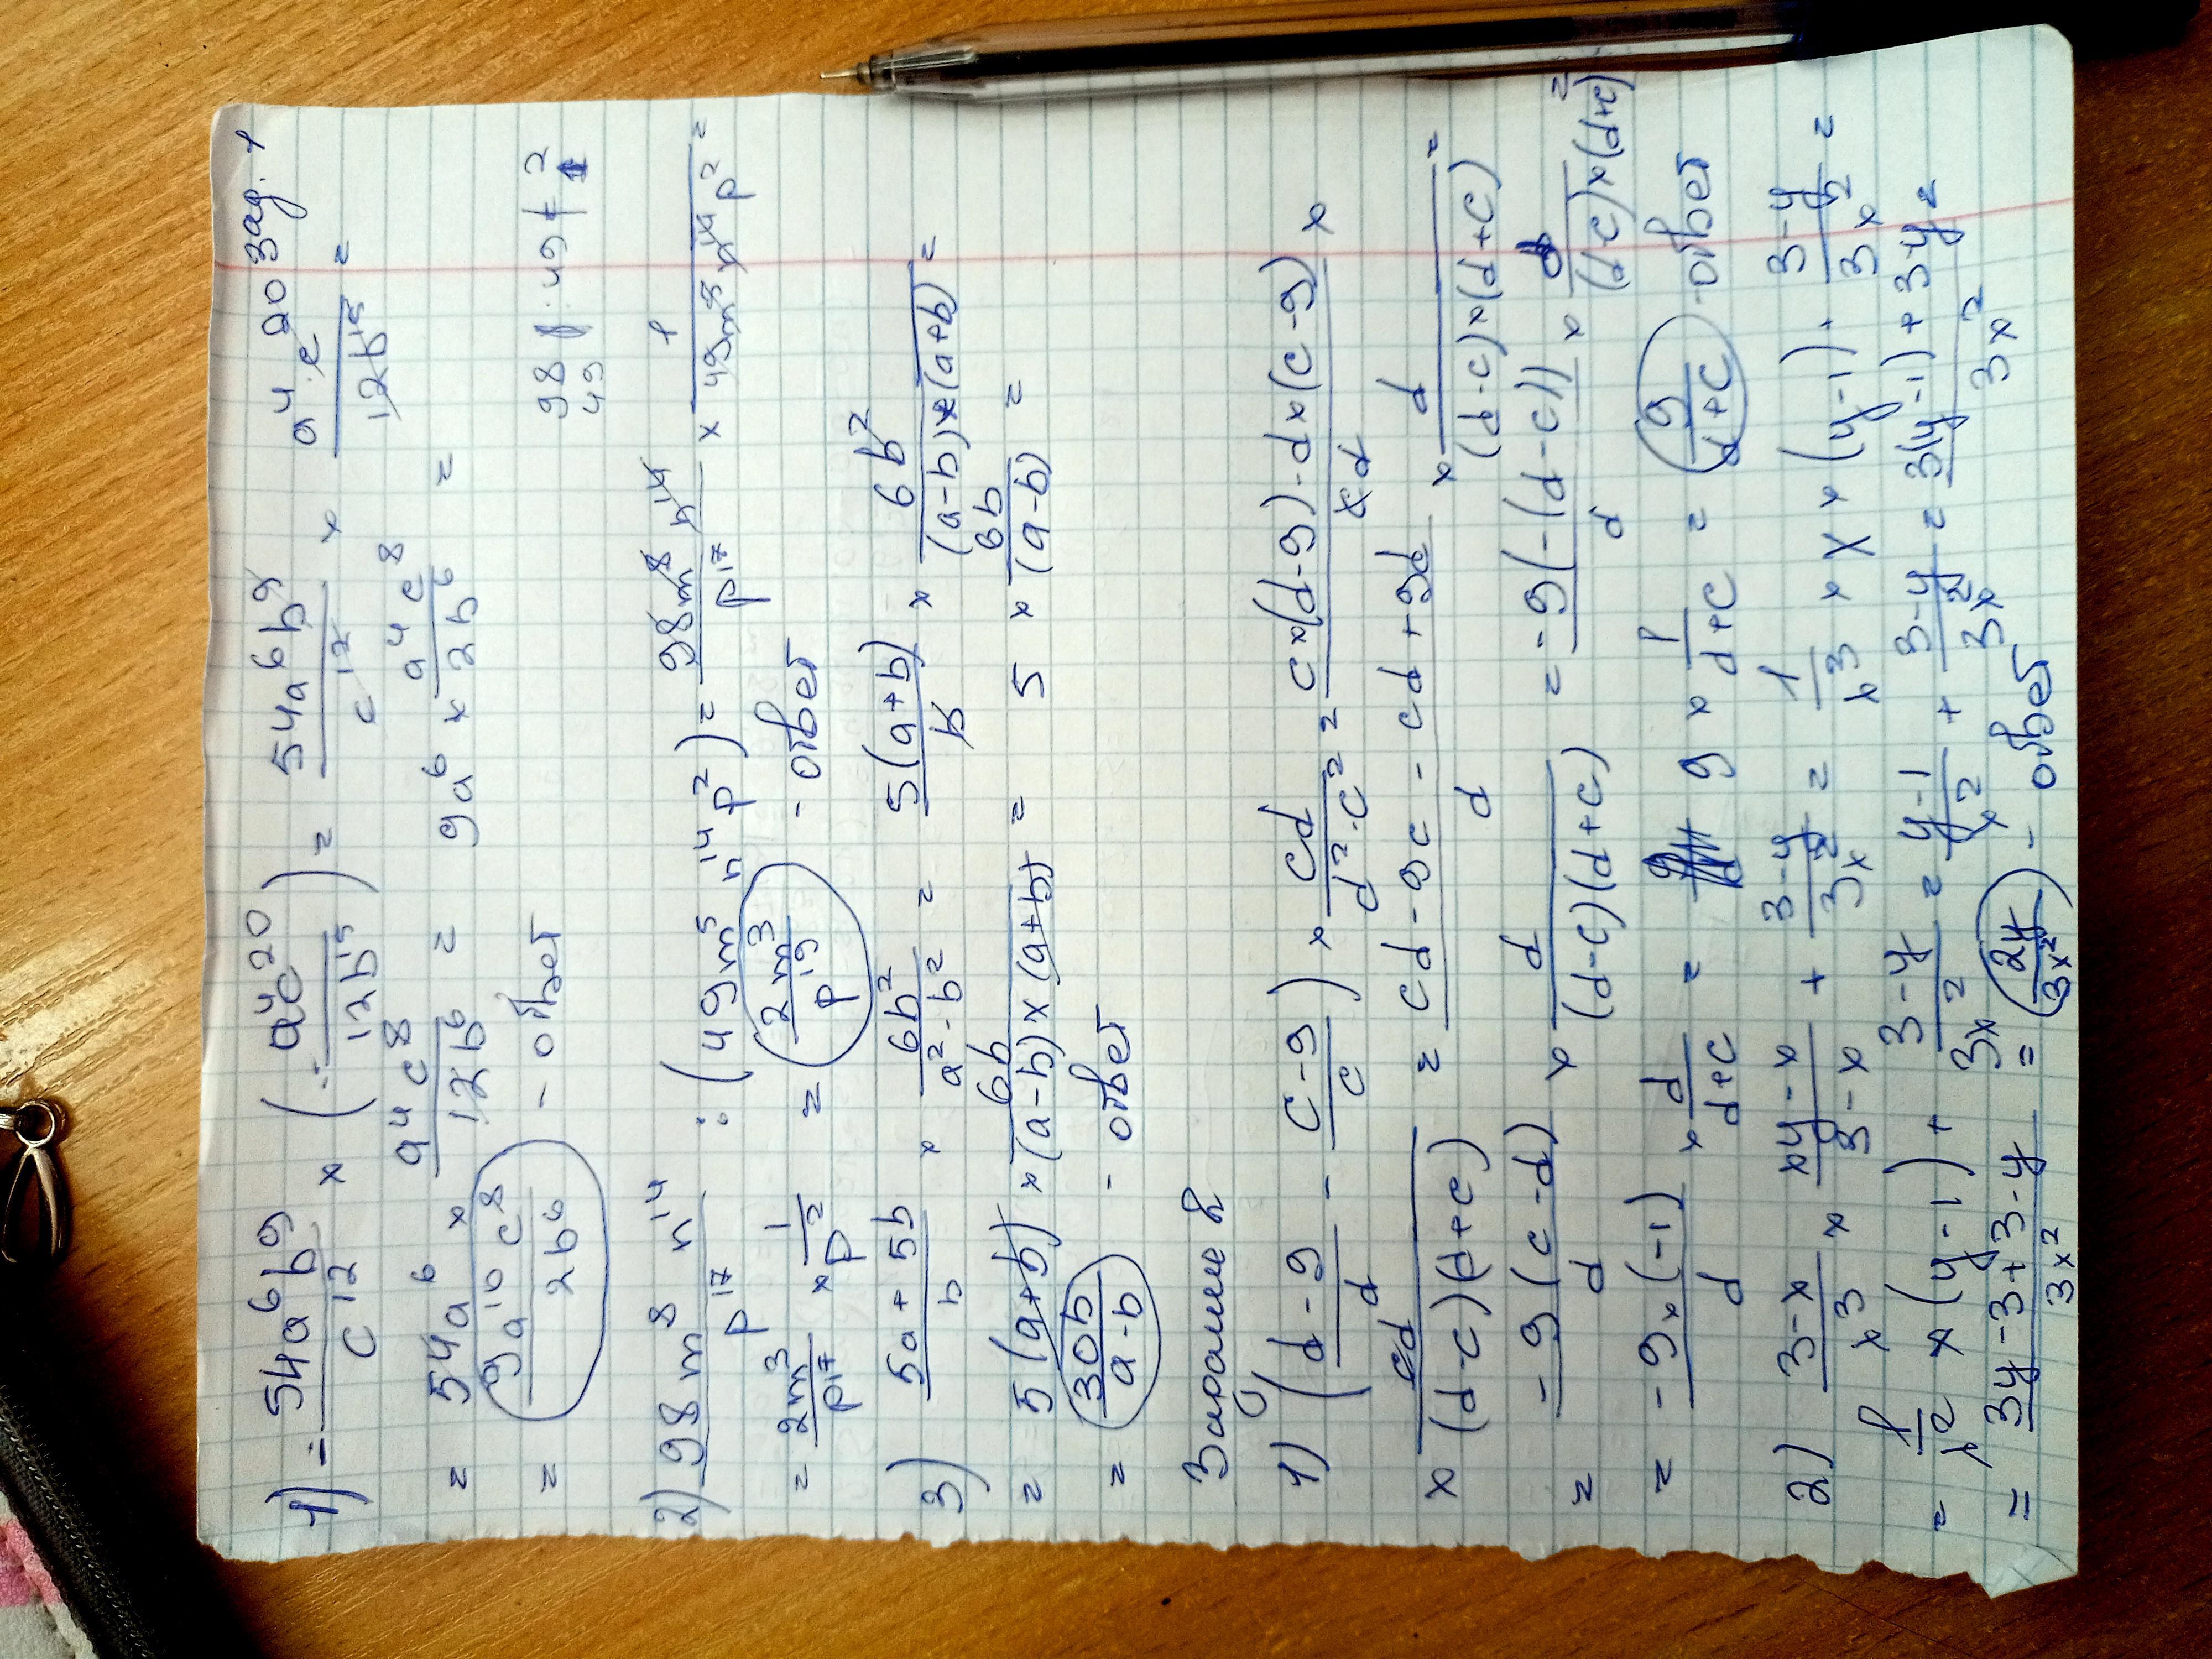 зад. 1
1) -54a⁶b⁹/c¹² × (-a⁴c²⁰/12b¹⁵) = 54a⁶b⁹/c¹² × a⁴·c²⁰/12b¹⁵ =
= 54a⁶ × a⁴c⁸/12b⁶ = 9a⁶ × a⁴c⁸/2b⁶ =
= 9a¹⁰c⁸/2b⁶ - ответ
98 | 49
49 | 2
2) 98m⁸n¹⁴/p¹⁷ : (49m⁵n¹⁴p²) = 98m⁸n¹⁴/p¹⁷ × 1/49m⁵n¹⁴p² =
= 2m³/p¹⁷ × 1/p² = 2m³/p¹⁹ - ответ
3) 5a+5b/b × 6b²/a²-b² = 5(a+b)/b × 6b²/(a-b)×(a+b) =
= 5(a+b) × 6b/(a-b)×(a+b) = 5 × 6b/(a-b) =
= 30b/a-b - ответ
Задание 2
1) (d-9/d - c-9/c) × cd/d²-c² = c×(d-9)-d×(c-9)/cd ×
× cd/(d-c)(d+c) = cd-9c-cd+9d/d × d/(d-c)×(d+c) =
= -9(c-d)/d × d/(d-c)(d+c) = -9(-(d-c))/d × d/(d-c)×(d+c) =
= -9×(-1)/d × d/d+c = 9 × 1/d+c = 9/d+c - ответ
2) 3-x/x³ × xy-x/3-x + 3-y/3x² = 1/x³ × x × (y-1) + 3-y/3x² =
= 1/x² × (y-1) + 3-y/3x² = y-1/x² + 3-y/3x² = 3(y-1)+3-y/3x² =
= 3y-3+3-y/3x² = 2y/3x² - ответ